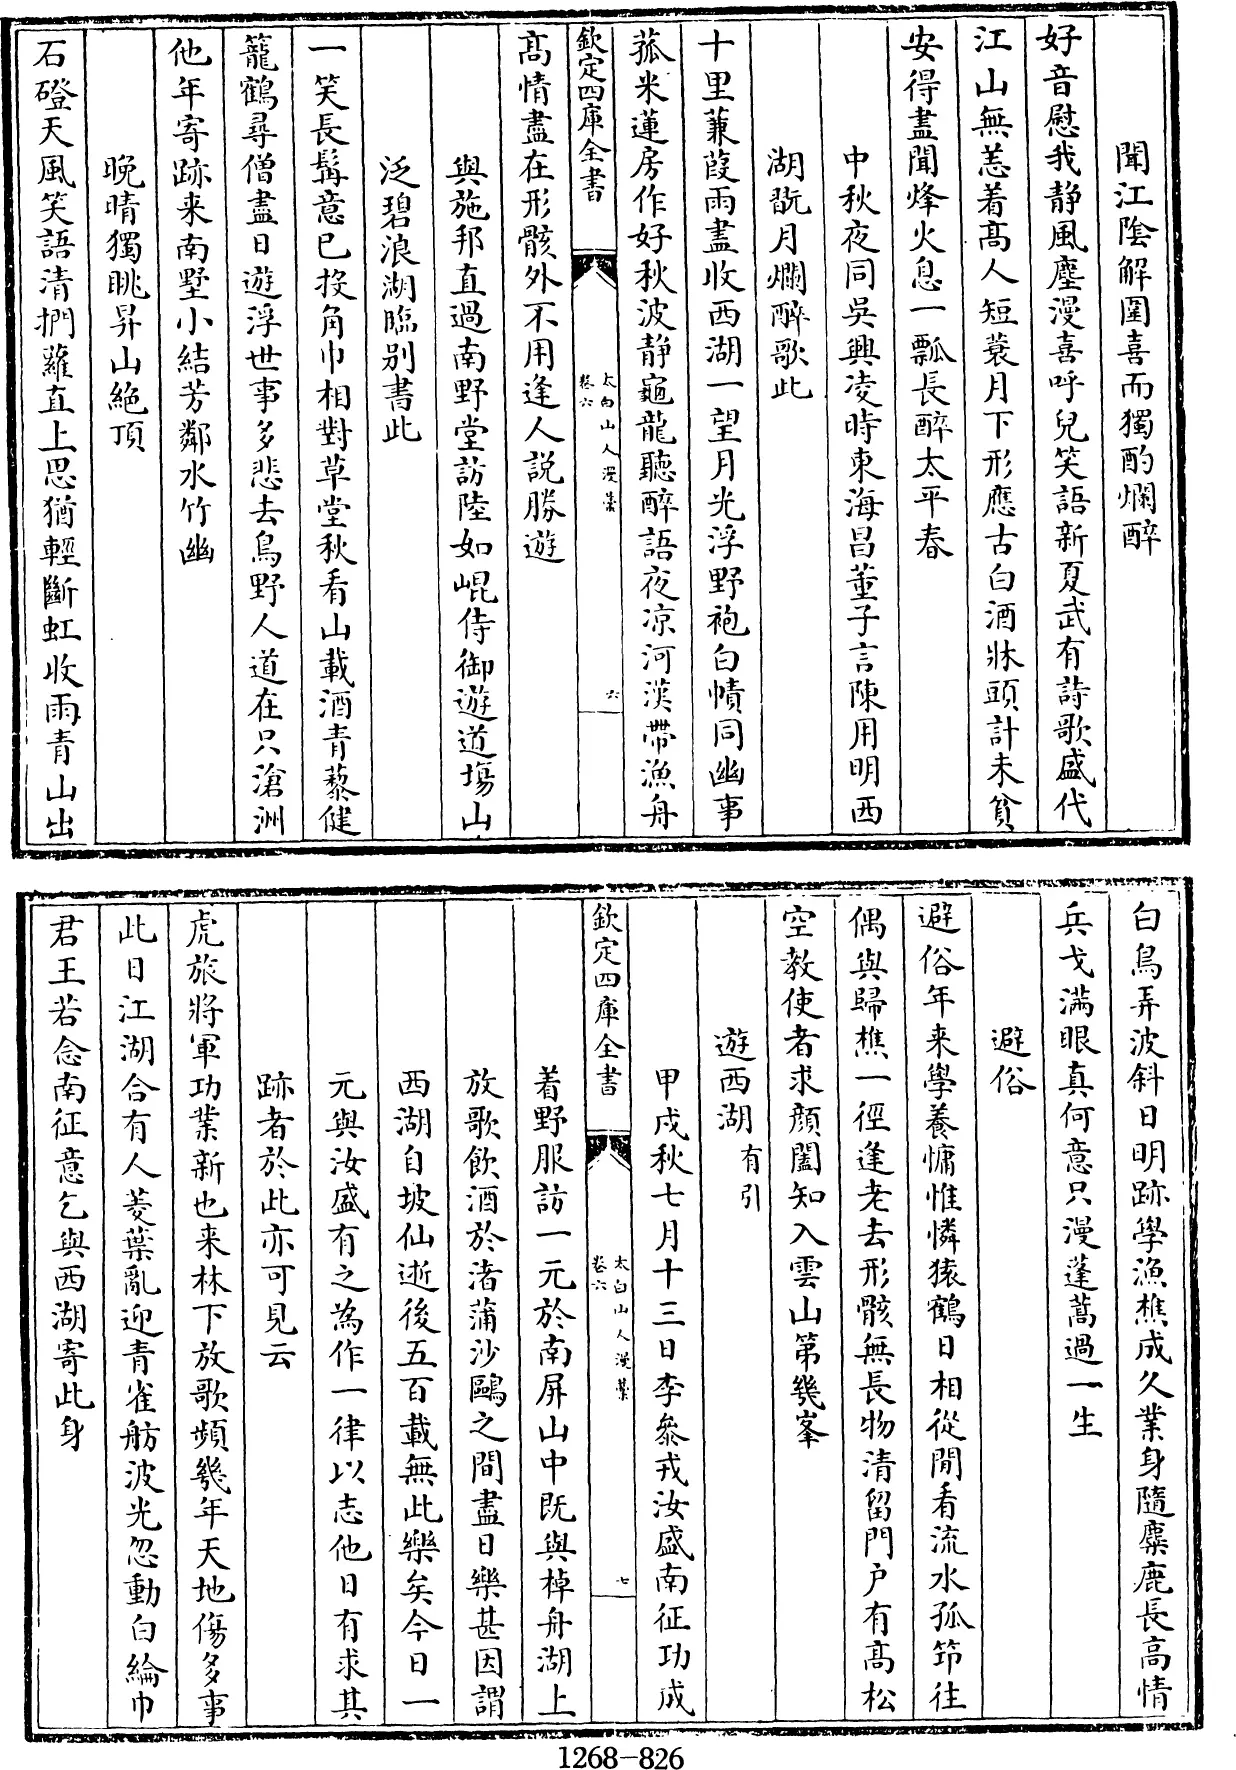 聞江陰解圍喜而獨酌爛醉
好音慰我静風塵漫喜呼兒笑語新夏武有詩歌盛代
江山無恙着髙人短蓑月下形應古白酒牀頭計未貧
安得盡聞烽火息一瓢長醉太平春
中秋夜同吳興凌時東海昌董子言陳用明西
湖翫月爛醉歌此
十里蒹葭雨盡收西湖一望月光浮野袍白幘同幽事
菰米蓮房作好秋波静龜龍聽醉語夜凉河漢帶漁舟
欽定四庫全書
太白山人漫藁
卷六
六
髙情盡在形骸外不用逢人説勝遊
與施邦直過南野堂訪陸如崐侍御遊道場山
泛碧浪湖臨别書此
一笑長髯意已投角巾相對草堂秋看山載酒青藜健
籠鶴尋僧盡日遊浮世事多悲去鳥野人道在只滄洲
他年寄跡来南墅小結芳鄰水竹幽
晚晴獨眺昇山絶頂
石磴天風笑語清捫蘿直上思猶輕斷虹收雨青山出
白鳥弄波斜日明跡學漁樵成久業身隨麋鹿長高情
兵戈满眼真何意只漫蓬蒿過一生
避俗
避俗年来學養慵惟憐猿鶴日相從閒看流水孤筇往
偶與歸樵一徑逢老去形骸無長物清留門户有髙松
空教使者求顔闔知入雲山第幾峯
遊西湖有引
甲戌秋七月十三日李參戎汝盛南征功成
欽定四庫全書
太白山人漫藁
卷六
七
着野服訪一元於南屏山中既與棹舟湖上
放歌飲酒於渚蒲沙鷗之間盡日樂甚因謂
西湖自坡仙逝後五百載無此樂矣今日一
元與汝盛有之為作一律以志他日有求其
跡者於此亦可見云
虎旅將軍功業新也来林下放歌頻幾年天地傷多事
此日江湖合有人菱葉亂迎青雀舫波光忽動白綸巾
君王若念南征意乞與西湖寄此身
1268-826